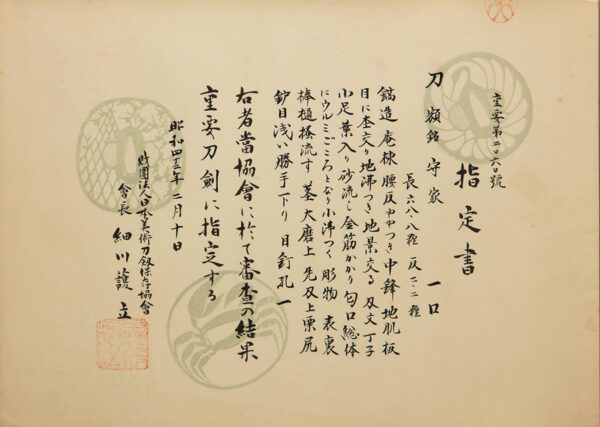 重要第二〇六〇號
指定書
刀 額銘 守家 一口
長 六八・八糎 反 二・二糎
鎬造 庵棟 腰反ややつき 中鋒 地肌 板
目に杢交り 地沸つき 地景交る 刃文 丁子
小足 葉入り 砂流し 金筋かかり 匂口総体
にウルミごころとなり 小沸つく 彫物 表裏
棒樋掻流す 茎 大磨上 先刃上栗尻
鑢目浅い勝手下り 目釘孔一
右者當協會に於て審査の結果
重要刀劍に指定する
昭和四十二年二月十日
財團法人日本美術刀劔保存協會
會長 細川護立